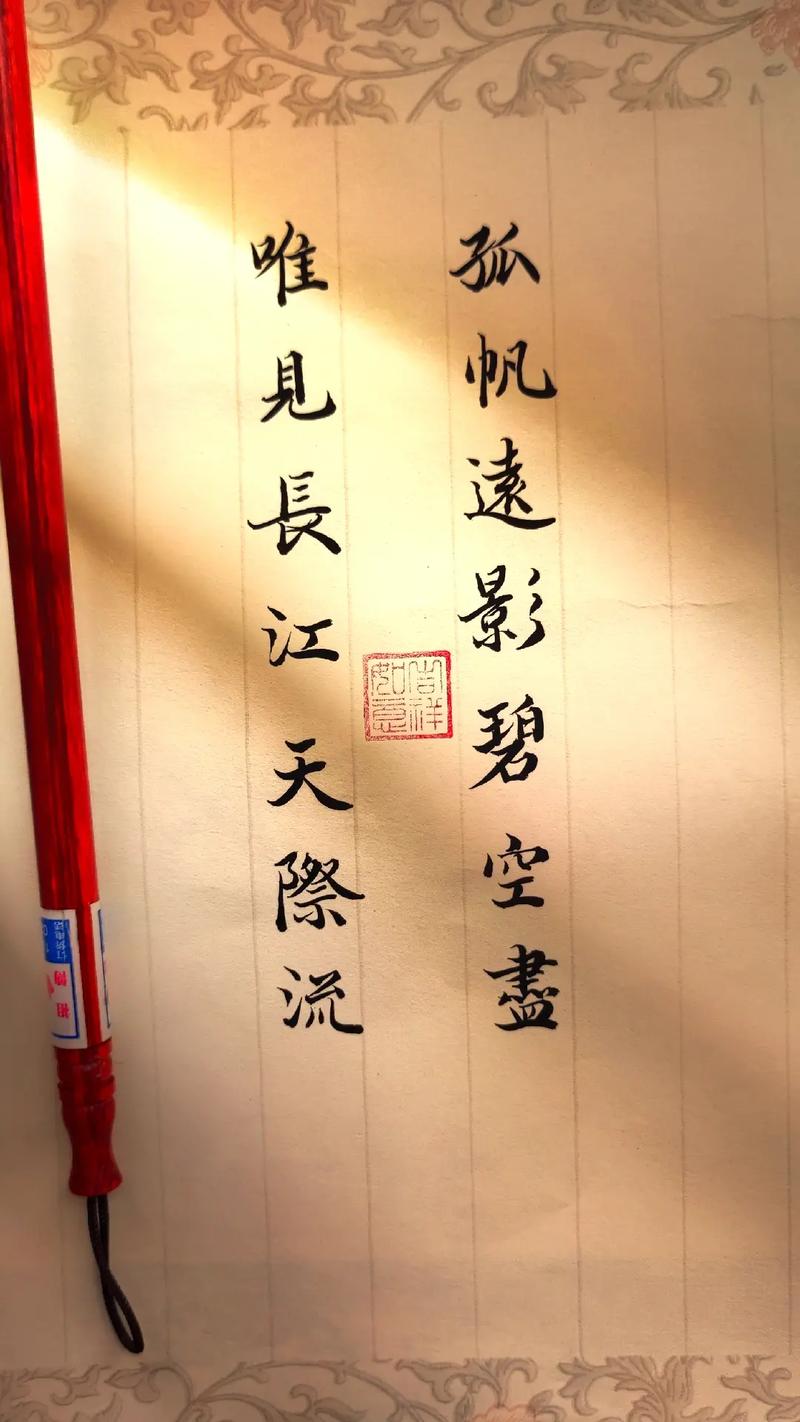 孤帆遠影碧空盡
唯見長江天際流
吉祥如意